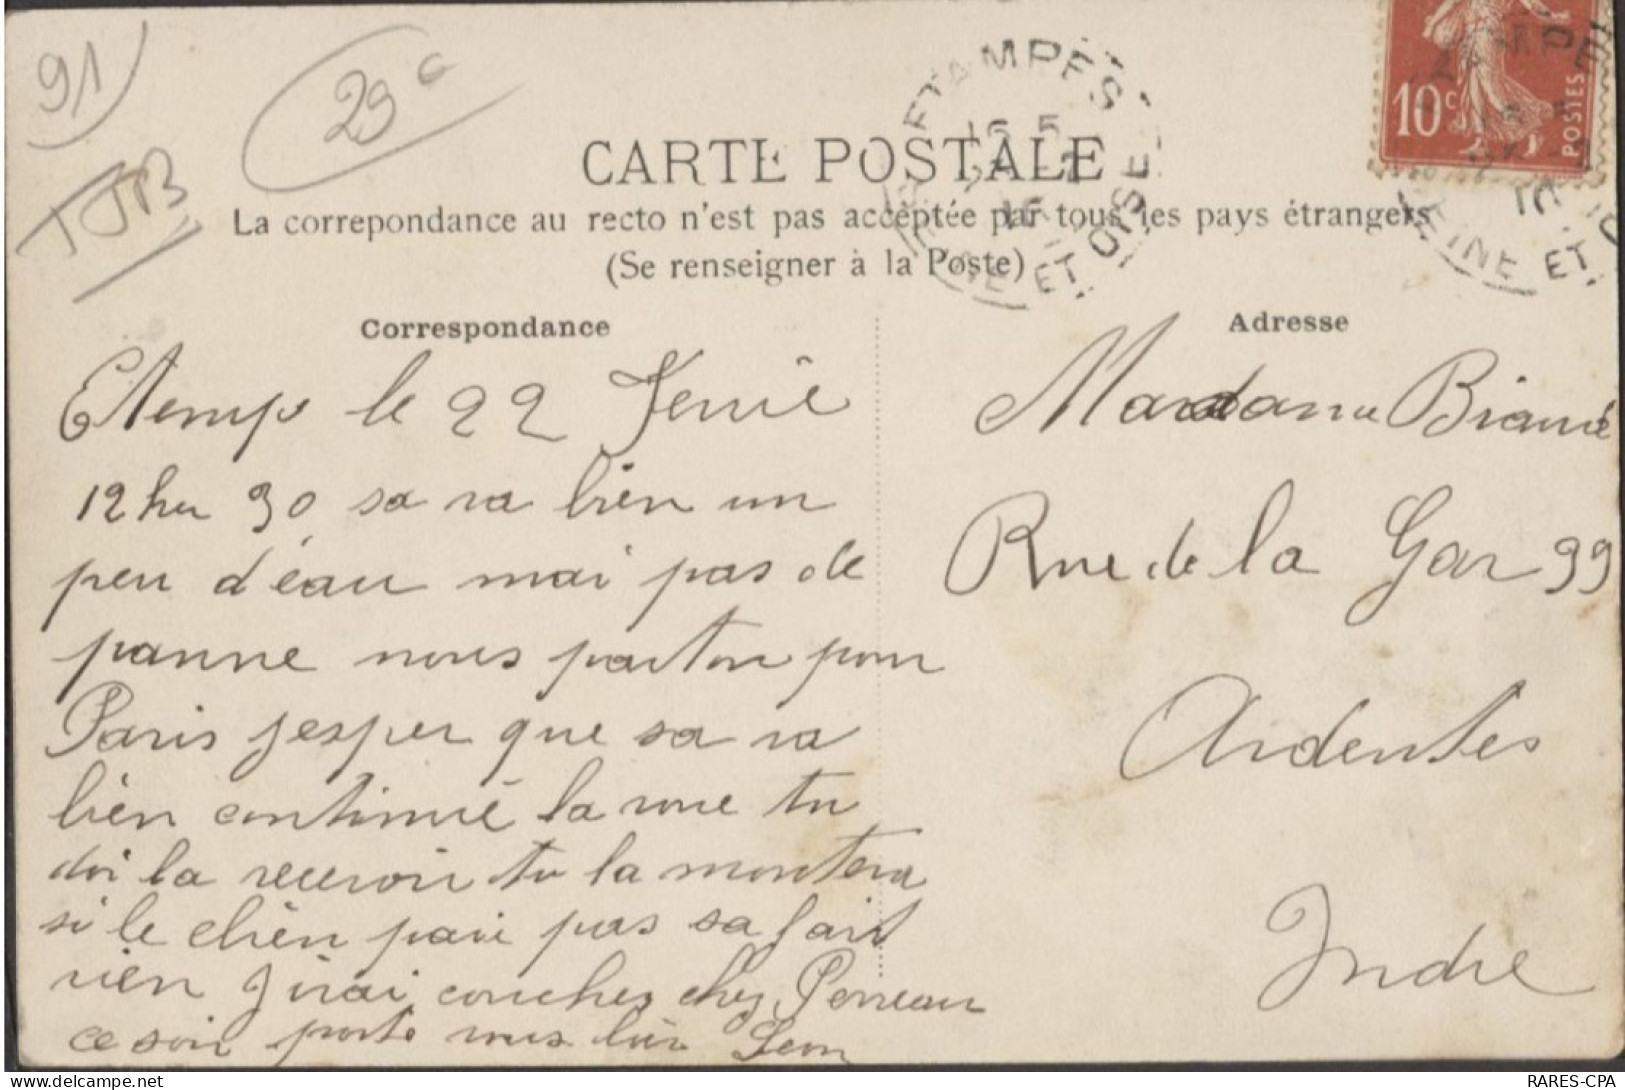 91
29 c
TJB
ETAMPES
SEINE ET OISE
10c
POSTES
SEINE ET
CARTE POSTALE
La correpondance au recto n'est pas acceptée par tous les pays étrangers
(Se renseigner à la Poste)
Correspondance
Etemps le 22
12 heu 30 sa va bien un
peu d'éau mai pas de
panne nous parton pour
Paris jesper que sa va
bien continué la roue tu
doi la recevoir tu la montera
si le chién pari pas sa fait
rien J irai coucher chez Perreau
ce soir porte vous bien Leon
Adresse
Madame
Rue de la Gar 99
Ardentes
Indre
RARES-CPA